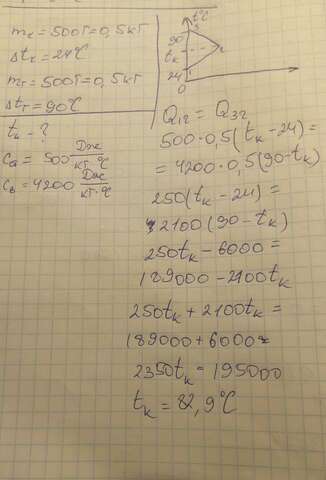 mс = 500г = 0,5кг
Δtх = 24°С
mг = 500г = 0,5кг
Δtг = 90°С
tк - ?
Cа = 500 Дж/кг·°С
Cв = 4200 Дж/кг·°С
t°С
3
90
tк
2
24
0
Q12 = Q32
500·0,5(tк-24)=
=4200·0,5(90-tк)
250(tк-24)=
2100(90-tк)
250tк-6000=
189000-2100tк
250tк+2100tк=
189000+6000=
2350tк=195000
tк=82,9°С